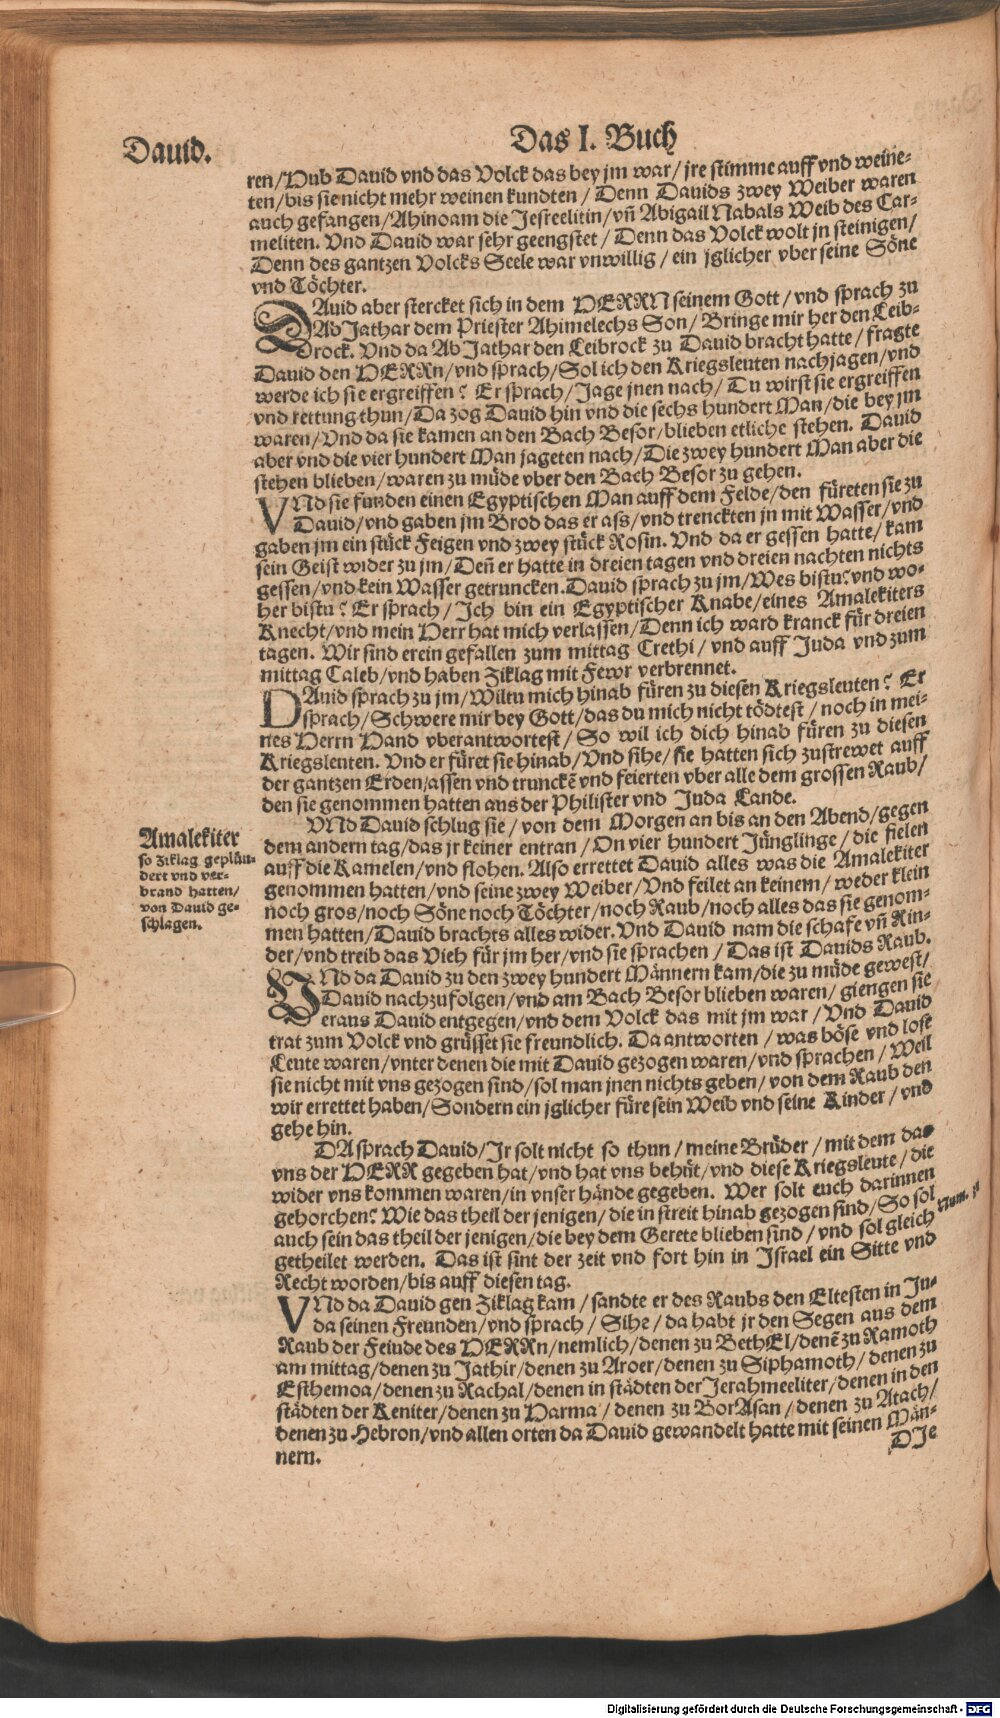 Dauid.
Das I. Buch
ren/Hub Dauid vnd das Volck das bey jm war/jre stimme auff vnd weine-
ten/bis sie nicht mehr weinen kundten/Denn Dauids zwey Weiber waren
auch gefangen/Ahinoam die Jesreelitin/vñ Abigail Nabals Weib des Car-
meliten. Vnd Dauid war sehr geengstet/Denn das Volck wolt jn steinigen/
Denn des gantzen Volcks Seele war vnwillig/ein jglicher vber seine Söne
vnd Töchter.
DAuid aber stercket sich in dem HERRN seinem Gott/vnd sprach zu
AbJathar dem Priester Ahimelechs Son/Bringe mir her den Leib-
rock. Vnd da AbJathar den Leibrock zu Dauid bracht hatte/fragte
Dauid den HERRn/vnd sprach/Sol ich den Kriegsleuten nachjagen/vnd
werde ich sie ergreiffen? Er sprach/Jage jnen nach/Du wirst sie ergreiffen
vnd rettung thun/Da zog Dauid hin vnd die sechs hundert Man/die bey jm
waren/Vnd da sie kamen an den Bach Besor/blieben etliche stehen. Dauid
aber vnd die vier hundert Man jageten nach/Die zwey hundert Man aber die
stehen blieben/waren zu müde vber den Bach Besor zu gehen.
VNd sie funden einen Egyptischen Man auff dem Felde/den füreten sie zu
Dauid/vnd gaben jm Brod das er ass/vnd trenckten jn mit Wasser/vnd
gaben jm ein stück Feigen vnd zwey stück Rosin. Vnd da er gessen hatte/kam
sein Geist wider zu jm/Deñ er hatte in dreien tagen vnd dreien nachten nichts
gessen/vnd kein Wasser getruncken. Dauid sprach zu jm/Wes bistu? vnd wo-
her bistu? Er sprach/Ich bin ein Egyptischer Knabe/eines Amalekiters
Knecht/vnd mein Herr hat mich verlassen/Denn ich ward kranck für dreien
tagen. Wir sind erein gefallen zum mittag Crethi/vnd auff Juda vnd zum
mittag Caleb/vnd haben Ziklag mit Fewr verbrennet.
DAuid sprach zu jm/Wiltu mich hinab füren zu diesen Kriegsleuten? Er
sprach/Schwere mir bey Gott/das du mich nicht tödtest/noch in mei-
nes Herrn Hand vberantwortest/So wil ich dich hinab füren zu diesen
Kriegsleuten. Vnd er füret sie hinab/Vnd sihe/sie hatten sich zustrewet auff
der gantzen Erden/assen vnd trunckẽ vnd feierten vber alle dem grossen Raub/
den sie genommen hatten aus der Philister vnd Juda Lande.
VNd Dauid schlug sie/von dem Morgen an bis an den Abend/gegen
dem andern tag/das jr keiner entran/On vier hundert Jünglinge/die fielen
auff die Kamelen/vnd flohen. Also errettet Dauid alles was die Amalekiter
genommen hatten/vnd seine zwey Weiber/Vnd feilet an keinem/weder klein
noch gros/noch Söne noch Töchter/noch Raub/noch alles das sie genom-
men hatten/Dauid brachts alles wider. Vnd Dauid nam die schafe vñ Rin-
der/vnd treib das Vieh für jm her/vnd sie sprachen/Das ist Dauids Raub.
Amalekiter
so Ziklag geplün-
dert vnd ver-
brand hatten/
von Dauid ge-
schlagen.
VNd da Dauid zu den zwey hundert Männern kam/die zu müde gewest/
Dauid nachzufolgen/vnd am Bach Besor blieben waren/giengen sie
eraus Dauid entgegen/vnd dem Volck das mit jm war/Vnd Dauid
trat zum Volck vnd grüsset sie freundlich. Da antworten/was böse vnd lose
Leute waren/vnter denen die mit Dauid gezogen waren/vnd sprachen/Weil
sie nicht mit vns gezogen sind/sol man jnen nichts geben/von dem Raub den
wir errettet haben/Sondern ein jglicher füre sein Weib vnd seine Kinder/vnd
gehe hin.
DA sprach Dauid/Jr solt nicht so thun/meine Brüder/mit dem das
vns der HERR gegeben hat/vnd hat vns behüt/vnd diese Kriegsleute/die
wider vns kommen waren/in vnser hände gegeben. Wer solt euch darinnen
gehorchen? Wie das theil der jenigen/die in streit hinab gezogen sind/So sol
auch sein das theil der jenigen/die bey dem Gerete blieben sind/vnd sol gleich
getheilet werden. Das ist sint der zeit vnd fort hin in Israel ein Sitte vnd
Recht worden/bis auff diesen tag.
Num.
VNd da Dauid gen Ziklag kam/sandte er des Raubs den Eltesten in Ju-
da seinen Freunden/vnd sprach/Sihe/da habt jr den Segen aus dem
Raub der Feiude des HERRn/nemlich/denen zu BethEl/denẽ zu Ramoth
am mittag/denen zu Jathir/denen zu Aroer/denen zu Siphamoth/denen zu
Esthemoa/denen zu Rachal/denen in städten der Jerahmeeliter/denen in den
städten der Keniter/denen zu Harma/denen zu BorAsan/denen zu Atach/
denen zu Hebron/vnd allen orten da Dauid gewandelt hatte mit seinen Män-
nern.
DIe
Digitalisierung gefördert durch die Deutsche Forschungsgemeinschaft - DFG